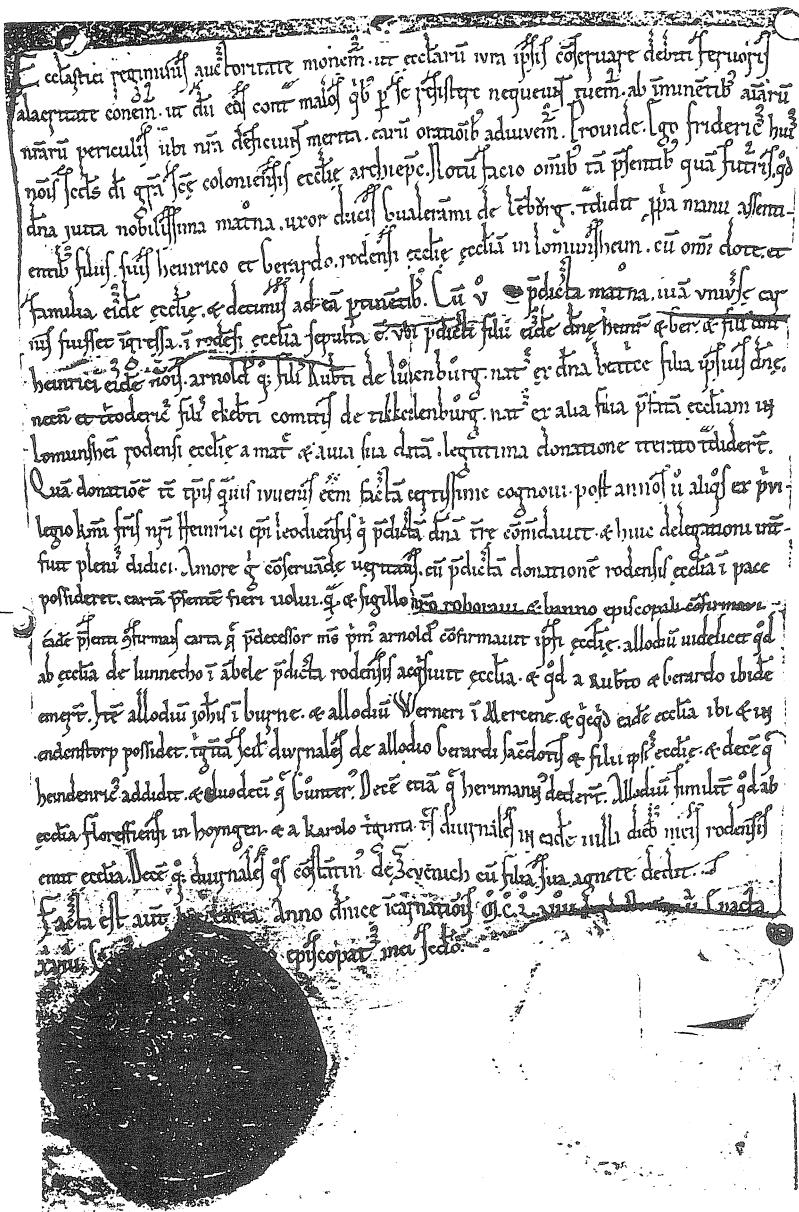 Ecclastici regiminis auctoritate monem᷑. ut ecclarū iura ipsis cōseruare debiti feruoris
alacritate conem᷑. ut dū eas cont̄ malos q̄b᷒ p̱ se resistere nequeunt tuem᷑. ab īminentib᷒ aīarū
nr̄arū periculis ubi nr̄a deficiunt merita. earū oratioīb᷒ adiuuem᷑. Prouide. Ego frideric᷒ hui᷒
nōis scds dī gr̄a scē coloniensis ecclię archiepc̄. Notū facio omīb᷒ tā p̄sentib᷒ quā futuris. qd̄
dn̄a iutta nobilissima mat͛na. uxor ducis Gualerāmi de lēbōrg. t͛didit p̱p̱ia manu assenti-
entib᷒ filiis suis heinrico et Gerardo. rodensi ecclię ecclīā in lomuntsheim. cū omī dote. et
familia eide ecclię. & decimis ad eā p̱tinētib᷒. Cū ū p̄dicta mat͛na. uiā uniūsę car
nis fuisset īgressa. ī rodēsi ecclīa sepulta ē. ubi p̄dicti filii eide dnę heinr̄ & Ger. & filī
heinrici eide nōis. arnold᷒ q̨ fili᷒ Rub̄ti de lurenburg. nat᷒ ex dn̄a beat͛ce filia ipsius dnę.
necn̄ et tr̄oderic᷒ fili᷒ ekeb̄ti comitis de tikkelenburg. nat᷒ ex alia filia p̄fatā eccliam in
lomunshei rodensi ecclię a mat͛ & auia sua datā. legittima donatione iterato t͛didert̄.
Quā donationē tē tp̄is q̄uis iuuenis eēm factā certissime cognoui. post annos ū aliq̄s ex p̄ui-
legio kmi fr̄is nr̄i Heinrici epī leodiensis q̄ p̄dictā dn̄ā t͛re cōmdauit. & huic delegationi int̄-
fuit pleni᷒ didici. Amore g̊ cōseruandę ueritatis. cū p̄dictā donationē rodensis ecclīa ī pace
possideret. cartā p̄sentē fieri uolui. q̄ & sigillo nr̄o roboraui. & banno episcopali cōfirmaui.
Eade p̄senti ꝯfirmans carta q̄ p̄decessor ms̄ p̄m᷒ arnold᷒ cōfirmauit ipsi ecclię. allodiū uidelicet qd̄
ab ecclīa de lunnecho ī abele p̄dicta rodensis acq̄siuit ecclīa. & qd̄ a Rub̄to & Gerardo ibidē
emert̄. Itē allodiū johīs ī burne. & allodiū Werneri ī Mercene. & q̄cq̄d eade ecclīa ibi & in
endenstorp possidet. t͛ginta scil᷒ diurnales de allodio Gerardi sacdotis & filii ipsi᷒ ecclię. & decē q̄
heindenric᷒ addidit. & duodeci q̄ Gunter᷒. Decē etiā q̄ herimann᷒ dedert̄. Allodiū similit᷒ qd̄ ab
ecclīa florefliensi in hoyngen. & a karolo t͛ginta. t͛s diurnales in eade uilli dict᷒ meis rodensis
emit ecclīa. Decē q̨ diurnales qs̄ cōstātin᷒ de Zeuenich cū filia sua agnete dedit.
Facta est aut̄ hec carta. Anno dn̄ice īcarnatiōis M̊.C̊.L̊.
xxiiii. episcopat᷒ mei scdo.